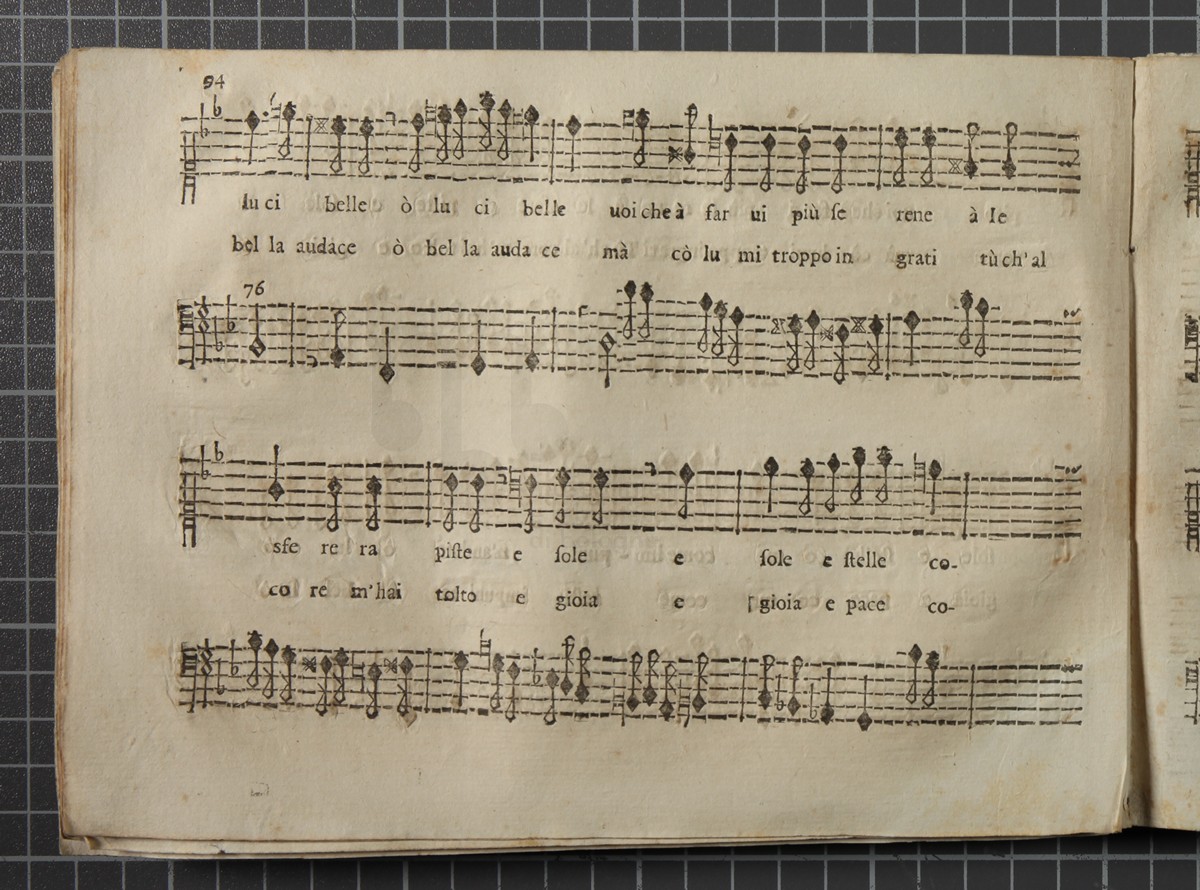 94
lu ci belle ò lu ci belle uoi che à far ui più ſe rene à le
bel la audace ò bel la auda ce mà cò lu mi troppo in grati tù ch' al
76
sfe re ra piſte e ſole e ſole e ſtelle co-
co re m' hai tolto e gioia e gioia e pace co-